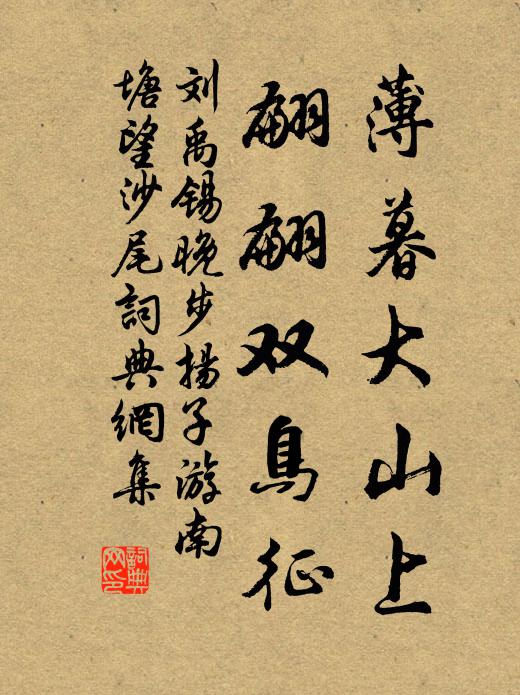 薄暮大山上
翩翩双鳥征
刘禹锡晚步揚子游南
塘望沙尾詞典網集
詞典
网印